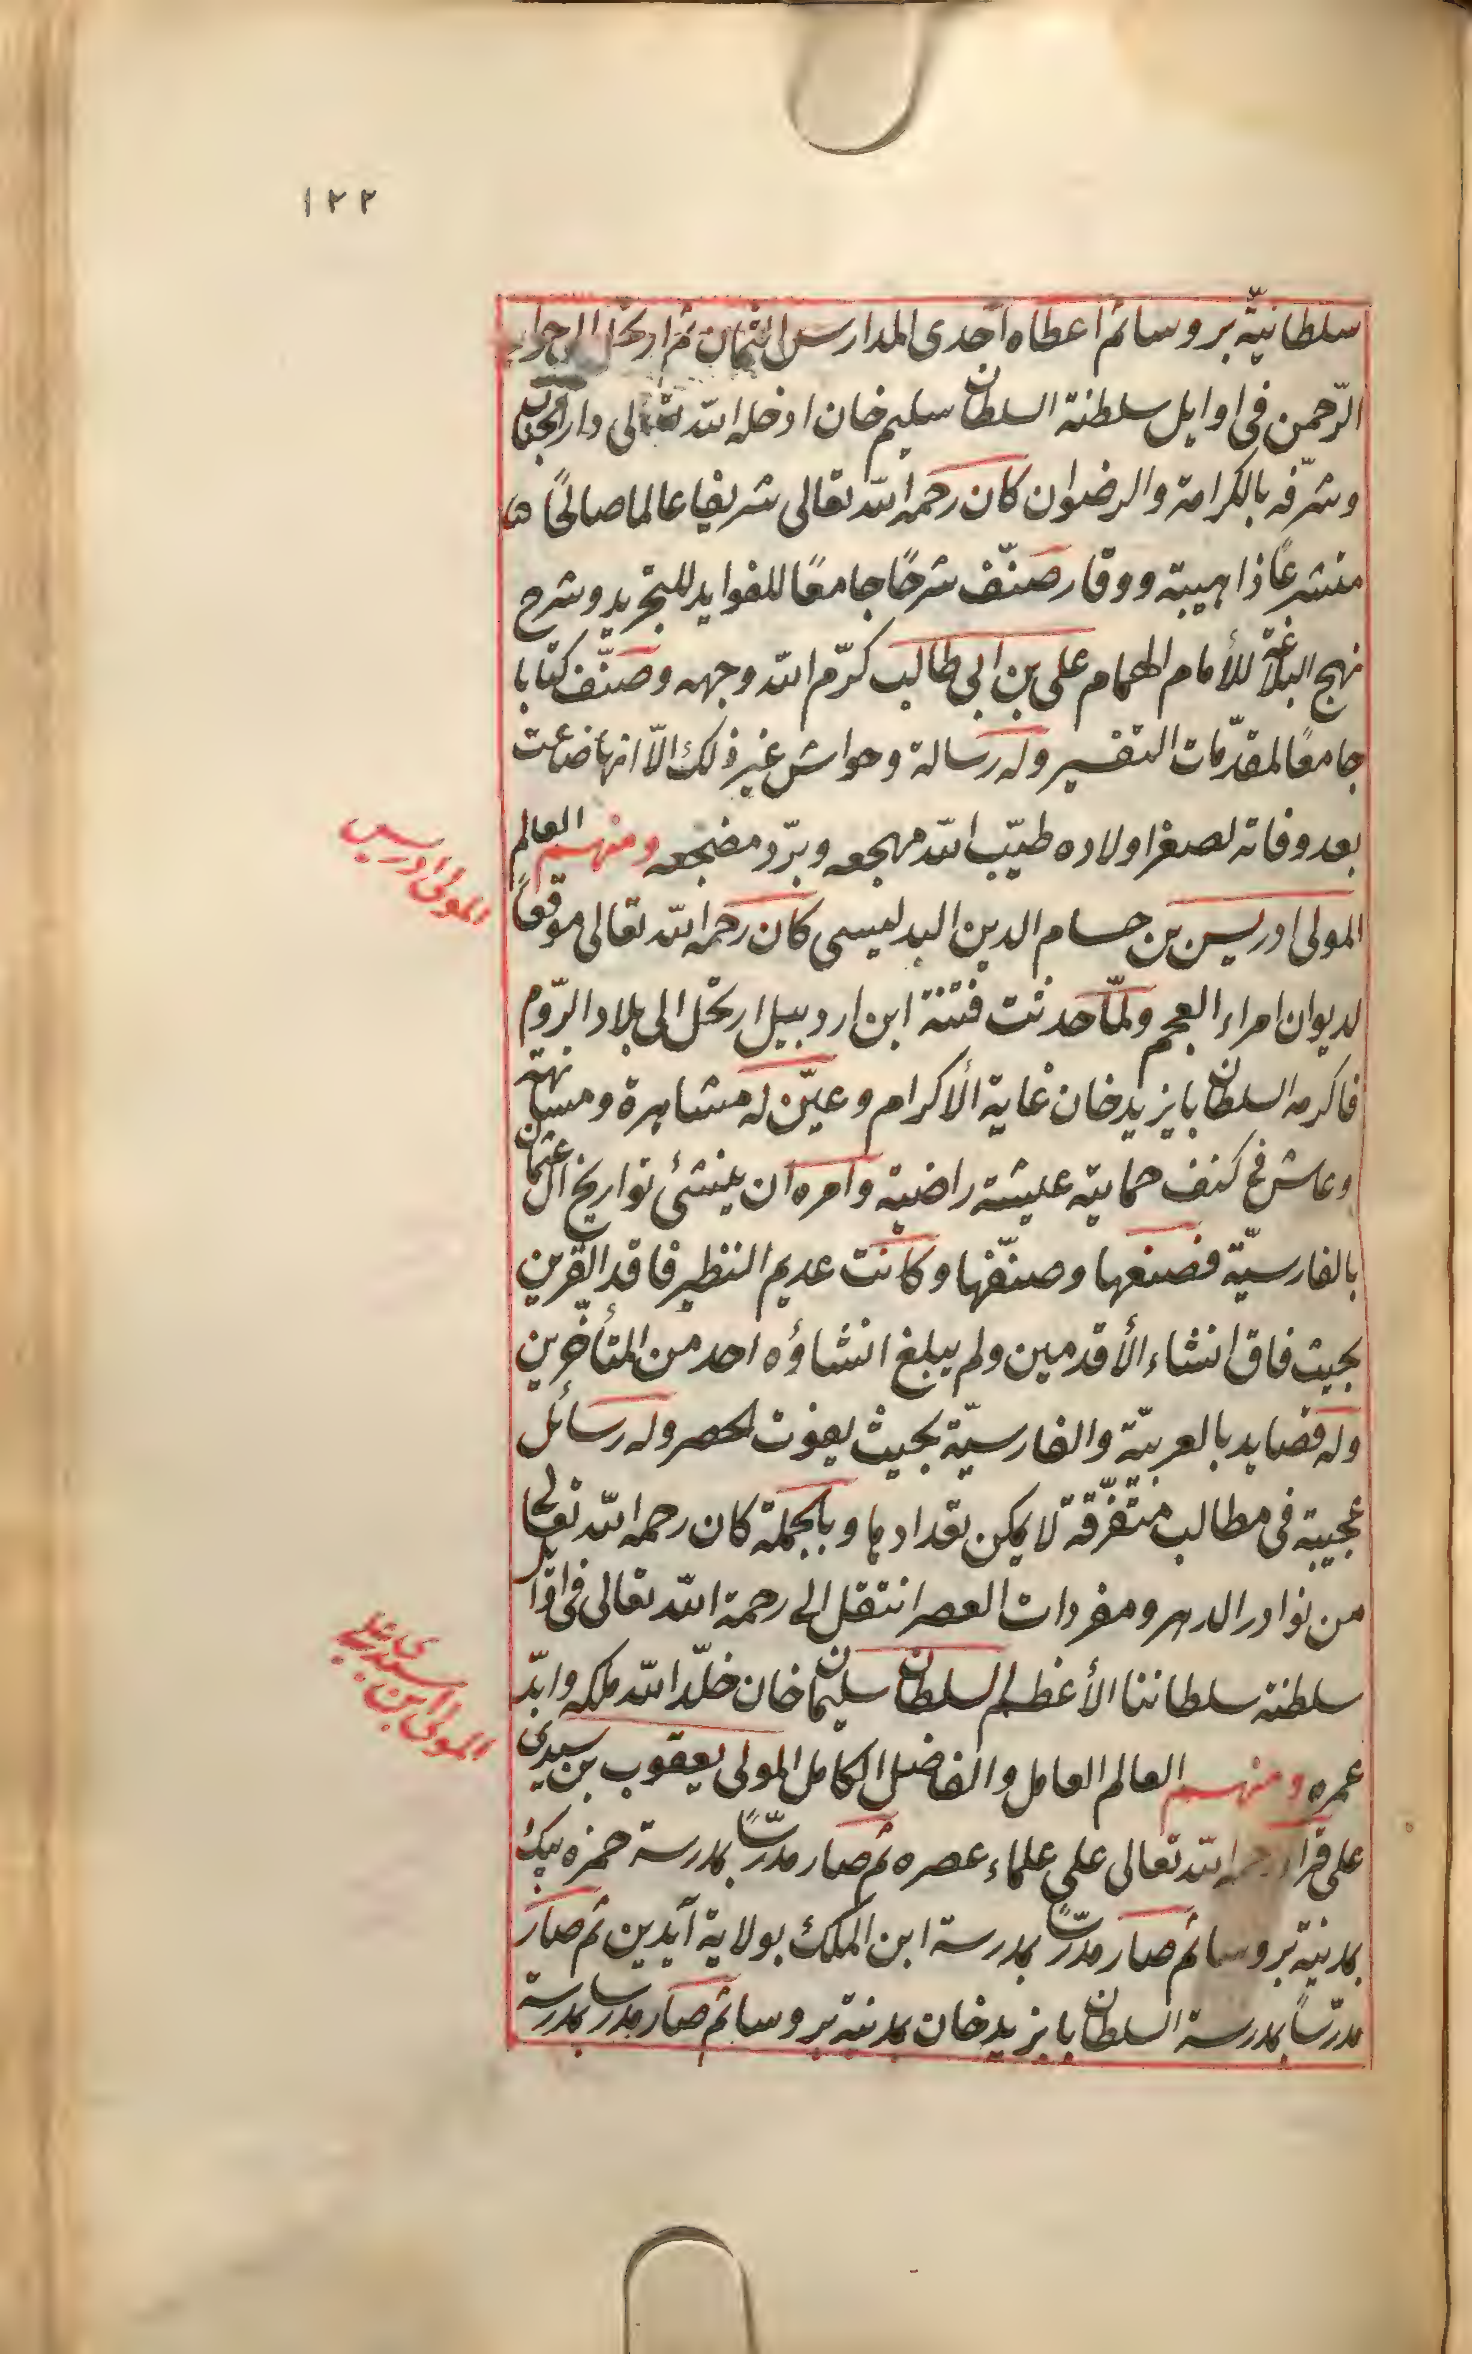 ١٢٢
سلطانيّة بروسا ثم اعطاه احدى المدارس الثمان ثم ارتحل الى جوار
الرّحمن فى اوايل سلطنة السلطان سليم خان ادخله الله تعالى دار الجنان
وشرّفه بالكرامة والرضوان كان رحمه الله تعالى شريفا عالما صالحًا
متشرعًا ذا هيبة ووقار صنّف شرحًا جامعًا للفوايد للتجريد وشرح
نهج البلاغة للأمام الهمام على بن ابى طالب كرّم الله وجهه وصنّف كتابا
جامعًا لمقدّمات التفسير وله رسالة وحواش غير ذلك الّا انها ضاعت
بعد وفاته لصغر اولاده طيّب الله مهجعه وبرّد مضجعه ومنهم العالم
المولى ادريس
المولى ادريس بن حسام الدين البدليسى كان رحمه الله تعالى موقّعًا
لديوان امراء العجم ولمّا حدثت فتنة ابن اردبيل ارتحل الى بلاد الرّوم
فاكرمه السلطان بايزيد خان غاية الأكرام وعيّن له مشاهرة ومسانهة
وعاش فى كنف حمايته عيشة راضية وامره ان ينشئ تواريخ آل عثمان
بالفارسيّة فصنعها وصنّفها وكانت عديم النظير فاقد القرين
بحيث فاق انشاء الأقدمين ولم يبلغ انشاؤه احد من المتأخّرين
وله قصايد بالعربيّة والفارسيّة بحيث يفوت الحصر وله رسائل
عجيبة فى مطالب متفرّقة لا يمكن تعدادها وبالجملة كان رحمه الله تعالى
من نوادر الدهر ومفردات العصر انتقل الى رحمة الله تعالى فى اوائل
سلطنة سلطاننا الأعظم السلطان سليمان خان خلّد الله ملكه وابّد
المولى ابن سيدى على
عمره ومنهم العالم العامل والفاضل الكامل المولى يعقوب بن سيدى
على قرأ رحمه الله تعالى على علماء عصره ثم صار مدرّسًا بمدرسة حمزه بيك
بمدينة بروسا ثم صار مدرّسًا بمدرسة ابن الملك بولاية آيدين ثم صار
مدرّسًا بمدرسة السلطان بايزيد خان بمدينة بروسا ثم صار مدرسا بمدرسة